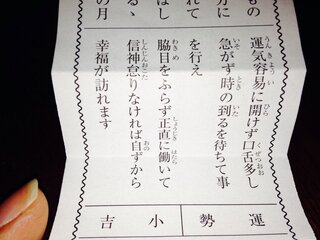 運気容易に開けず口舌多し
急がず時の到るを待ちて事
を行え
脇目をふらず正直に働いて
信神怠りなければ自ずから
幸福が訪れます
運勢
小吉
もの
れて
の月